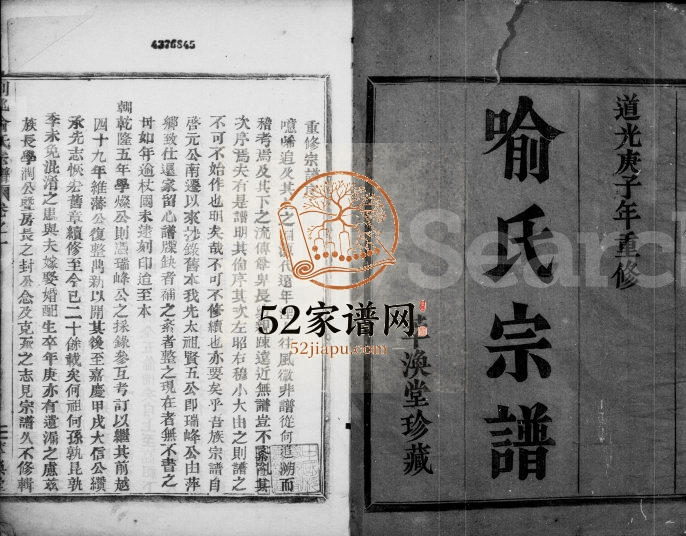 道光庚子年重修
喻氏宗譜
萃渙堂珍藏
Search
4376845
52家谱网
52jiapu.com
重修宗譜
噫嘻追
代遠年
風微非譜從何追溯而
稽考焉及其下之流傳尊卑長
疎遠近無譜豈不紊亂其
次序焉夫有是譜明其倫序其次左昭右穆小大由之則譜之
不可不始作也明矣哉不可不修續也亦要矣乎吾族宗譜自
啓元公南遷以來沙錄舊本我先太祖賢五公即瑞峰公由萍
鄉致仕還家留心譜牒缺者補之紊者整之現在者無不書之
母如年逾杖國未逮刻印迨至本
朝乾隆五年學燦公則憑瑞峰公之採錄參互考訂以繼其前越
四十九年維藩公復整萬新以開其後至嘉慶甲戌大信公纘
承先志恢宏舊章續修至今已二十餘載矣何祖何孫孰昆孰
季未免混淆之患與夫嫁娶婚配生卒年庚亦有遺漏之慮茲
族長學潤公暨房長之封公念及克
之志見宗譜久不修輯